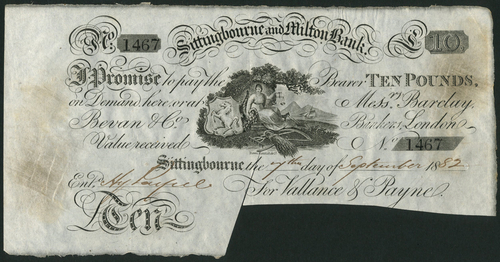 No. 1467 Sittingbourne and Milton Bank. £10
I Promise to pay the Bearer TEN POUNDS,
on Demand here or at Messrs. Barclay,
Bevan & Co. Bankers, London
Value received No. 1467
Sittingbourne the day of September 1882
Entd. Hy Payne For Vallance & Payne.
£Ten